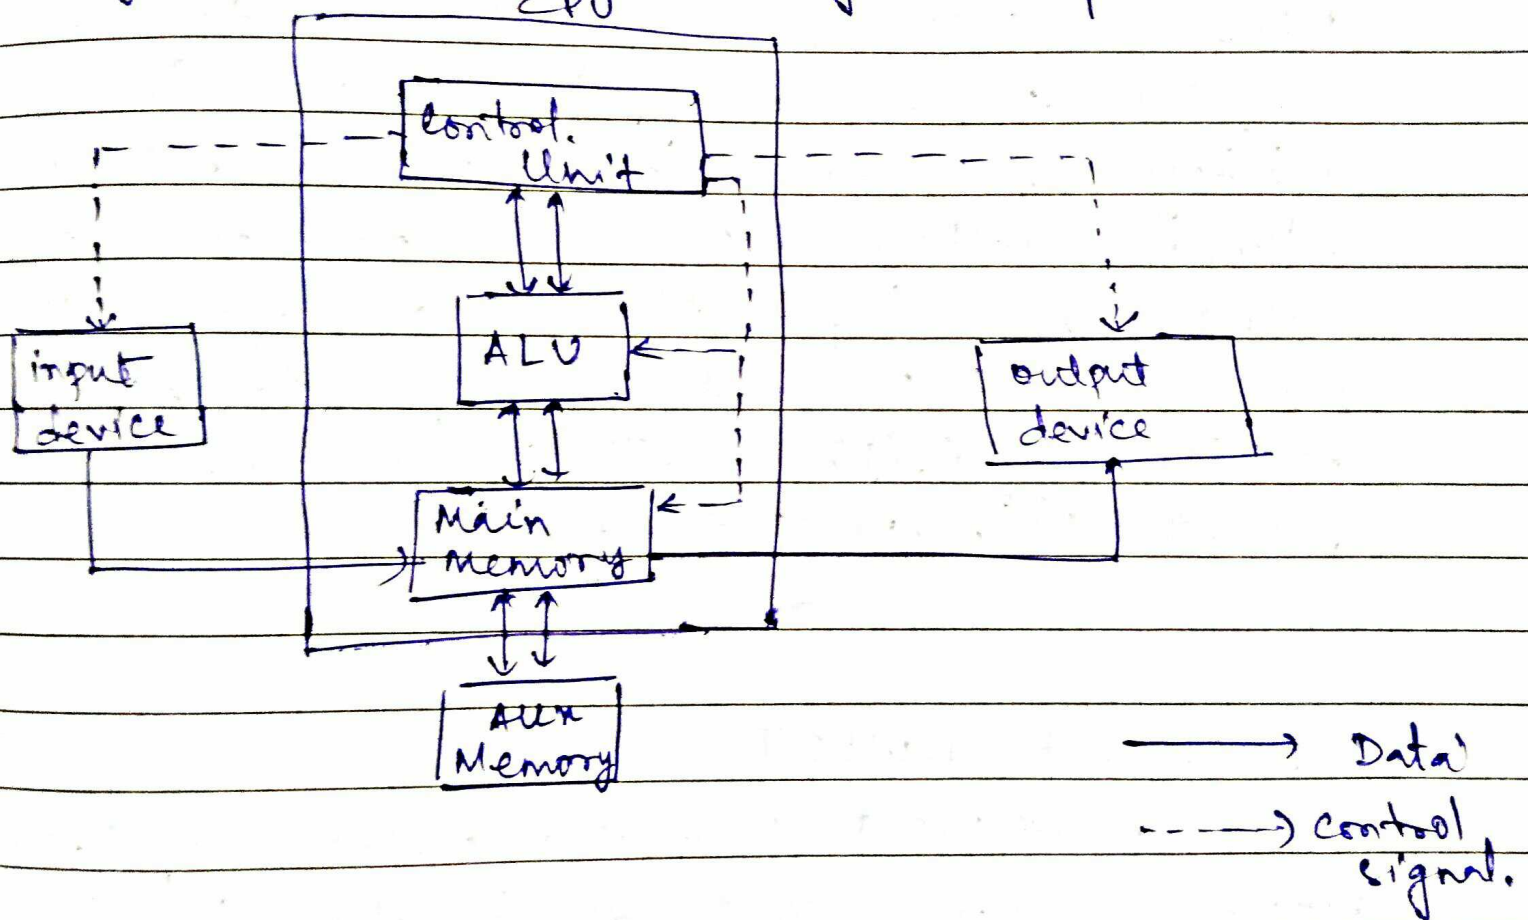 CPU
Control.
Unit
ALU
input
device
output
device
Main
Memory
Aux
Memory
Data
control
signal.